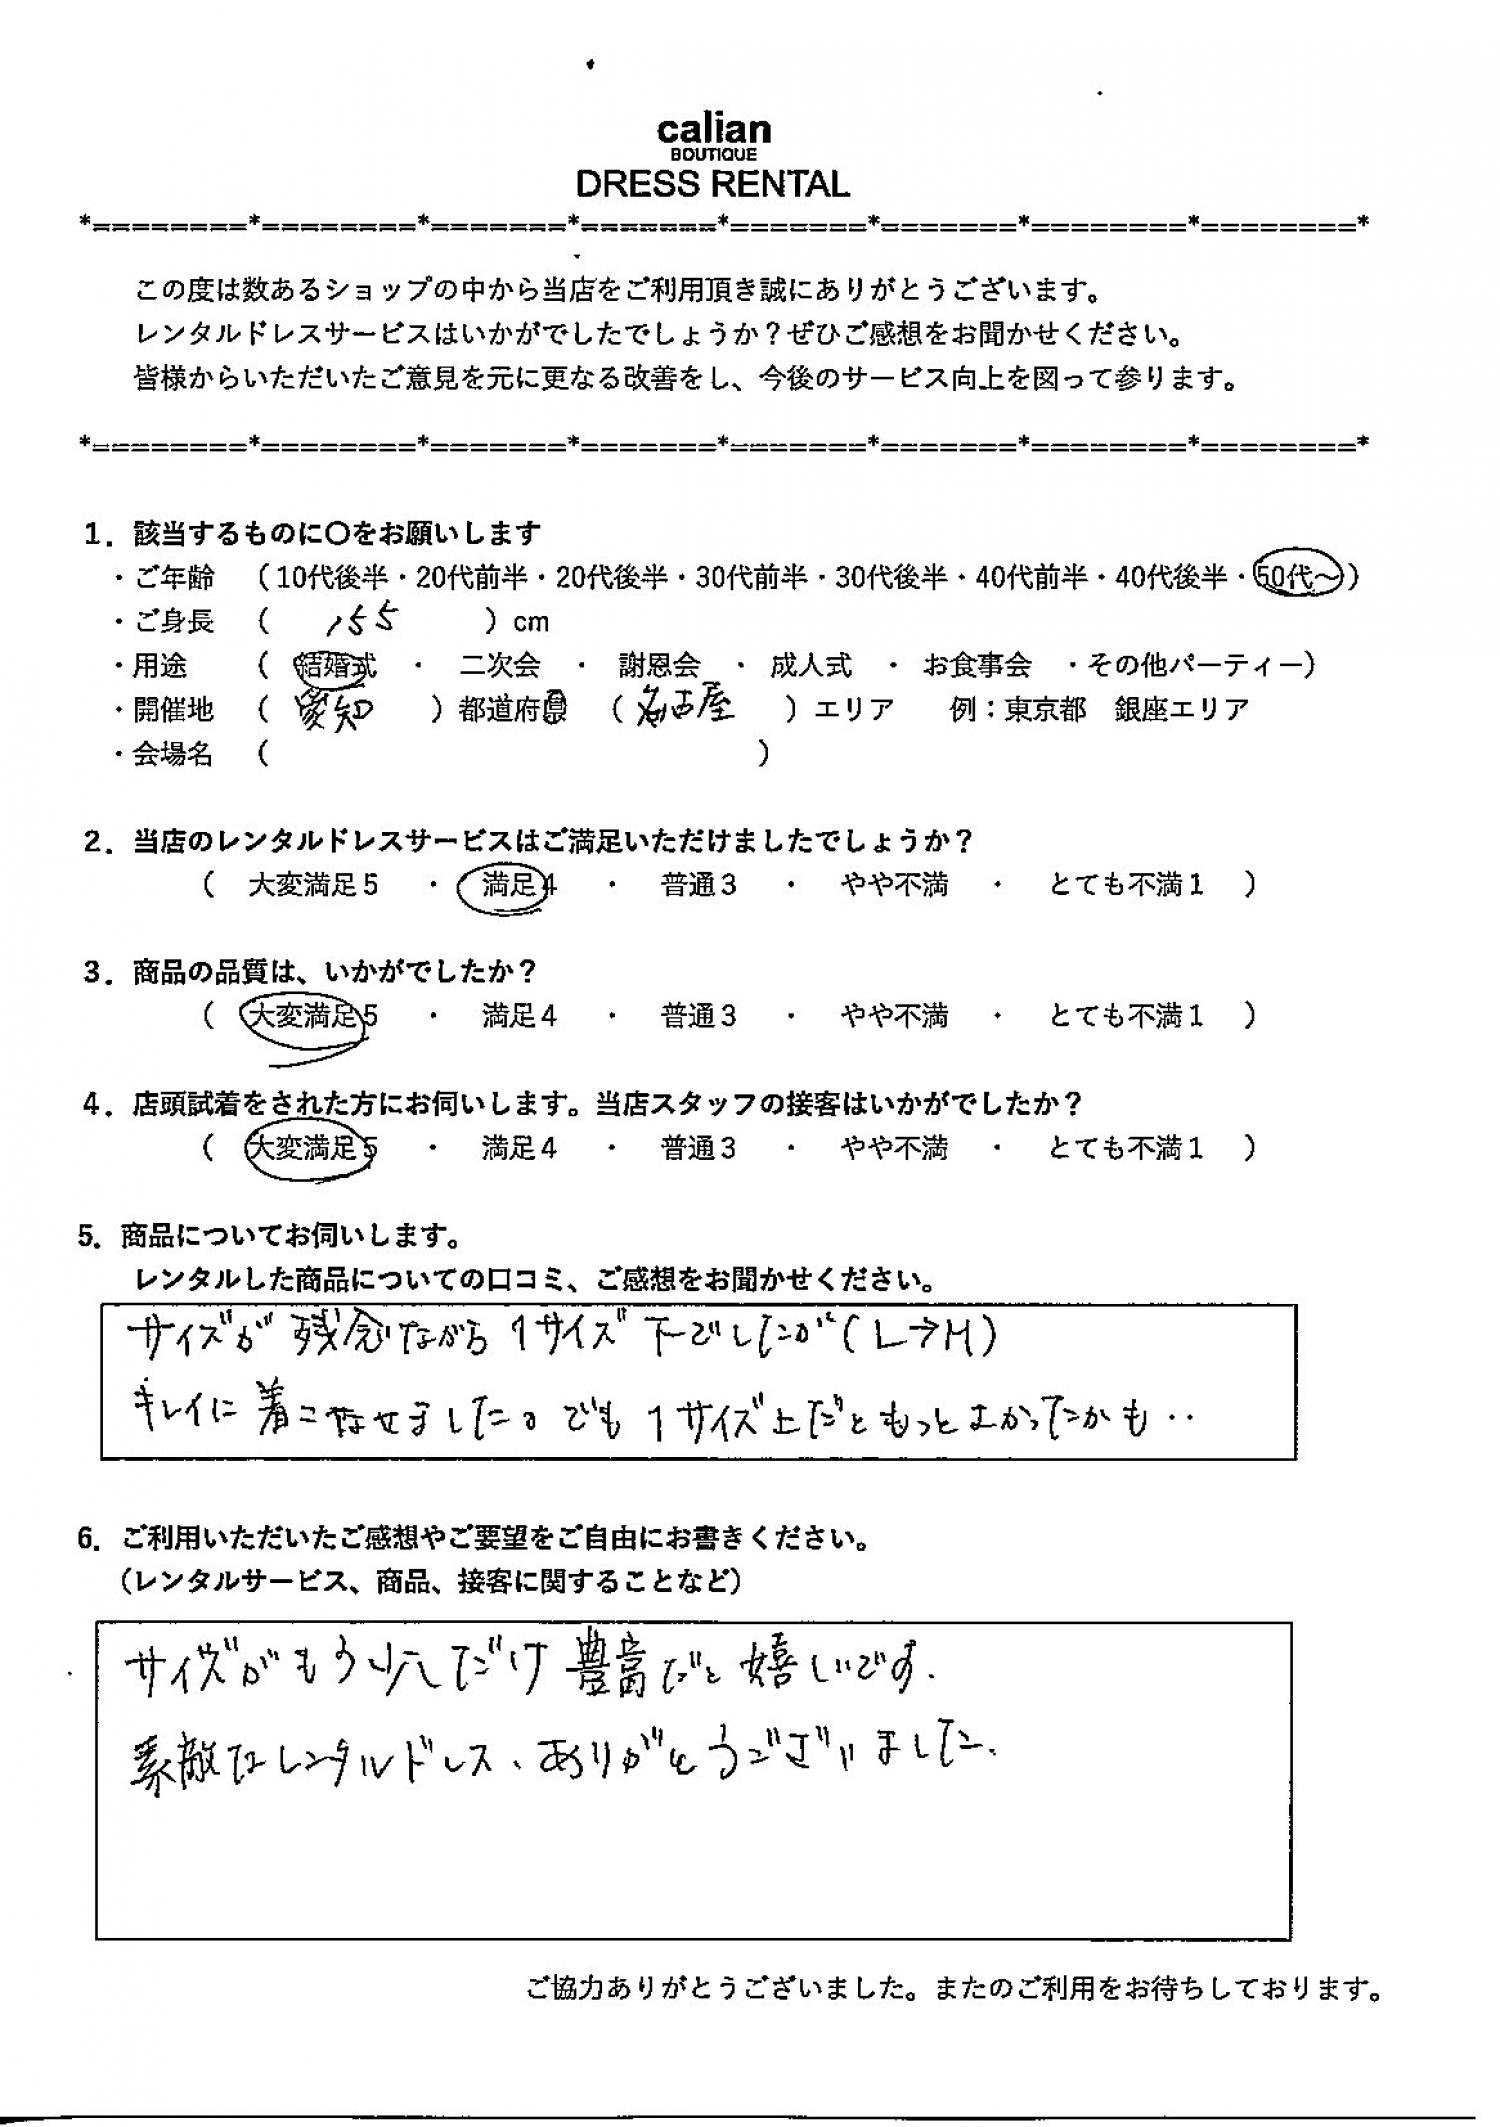 calian
BOUTIQUE
DRESS RENTAL
*========*========*=======*=======*=======*=======*========*========*
この度は数あるショップの中から当店をご利用頂き誠にありがとうございます。
レンタルドレスサービスはいかがでしたでしょうか？ぜひご感想をお聞かせください。
皆様からいただいたご意見を元に更なる改善をし、今後のサービス向上を図って参ります。
*========*========*=======*=======*=======*=======*========*========*
1．該当するものに〇をお願いします
・ご年齢　（10代後半・20代前半・20代後半・30代前半・30代後半・40代前半・40代後半・50代～）
・ご身長　（　155　）cm
・用途　（　結婚式　・　二次会　・　謝恩会　・　成人式　・　お食事会　・その他パーティー）
・開催地　（　愛知　）都道府県　（　名古屋　）エリア　例：東京都　銀座エリア
・会場名　（　　）
2．当店のレンタルドレスサービスはご満足いただけましたでしょうか？
（　大変満足5　・　満足4　・　普通3　・　やや不満　・　とても不満1　）
3．商品の品質は、いかがでしたか？
（　大変満足5　・　満足4　・　普通3　・　やや不満　・　とても不満1　）
4．店頭試着をされた方にお伺いします。当店スタッフの接客はいかがでしたか？
（　大変満足5　・　満足4　・　普通3　・　やや不満　・　とても不満1　）
5．商品についてお伺いします。
レンタルした商品についての口コミ、ご感想をお聞かせください。
サイズが残念ながら1サイズ下でしたが（L→M）
キレイに着こなせました。でも1サイズ上だともっとよかったかも‥
6．ご利用いただいたご感想やご要望をご自由にお書きください。
（レンタルサービス、商品、接客に関することなど）
サイズがもう少しだけ豊富だと嬉しいです.
素敵なレンタルドレス、ありがとうございました.
ご協力ありがとうございました。またのご利用をお待ちしております。